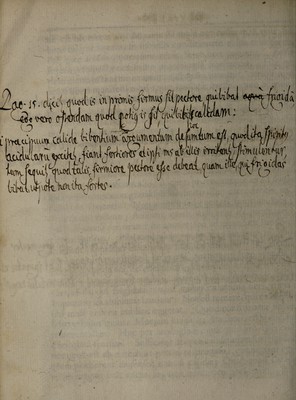 Pag. 15. dicit quod is in promis firmus sit pectore qui bibat aquā frigidā
ego vero ostendam quod potiq is sit qui bibit calidam:
i praecipuum calide bibentium argumentum desumtum est, quod ita spiritq
acidularū excitet, fiant fortiores et ipsi ms ab illis irritent, stimulentur
tam sequit quod talis firmiore pectore esse debeat, quam ille qui frigidas
bibat utpote non ita fortes.